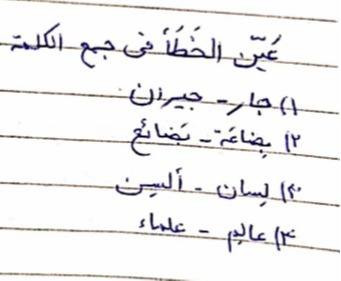 عَيِّن الخَطَأَ فی جمع الکلمة
۱) جار - جیران
۲) بِضاعَة - بَضائع
۳) لِسان - ألسِن
۴) عالِم - علماء